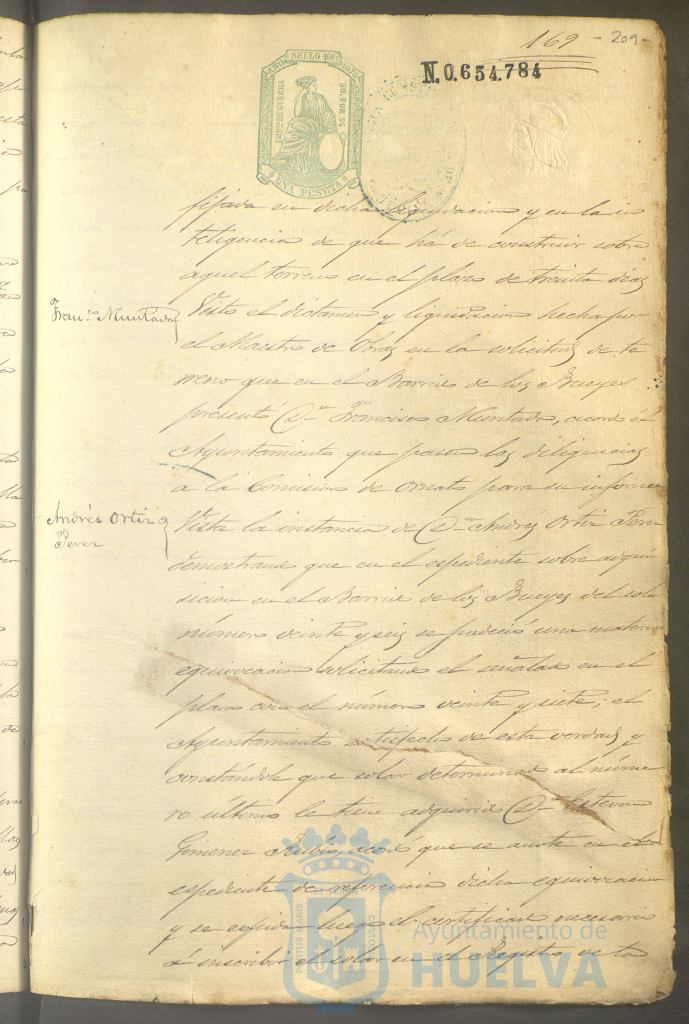 169 - 209-
N.0.654.784
SELLO 10º
AÑO 1875
IMPTO DE GUERRA
50 POR %
UNA PESETA
fijada en dicha liquidacion y en la in
teligencia de que há de construir sobre
aquel terreno en el plazo de treinta dias
Franco Muntada
Visto el dictamen y liquidacion hecha por
el Maestro de Obras en la solicitud de te
rreno que en el Barrio de los Bueyes
presentó Dn Francisco Muntada, acordó el
Ayuntamiento que pasen las diligencias
a la Comision de Ornato para su informe
Andrés Ortiz
Perez
Vista la instancia de Dn Andrés Ortiz Perez
demostrando que en el espediente sobre adqui
sicion en el Barrio de los Bueyes del solar
número veinte y seis se padeció una material
equivocacion solicitando el señalado en el
plano con el número veinte y siete; el
Ayuntamiento satisfecho de esta verdad y
constándole que solar determinado al núme
ro último le tiene adquirido Dn Estevan
Gimenez Rubio, acordó que se anote en el
espediente de referencia dicha equivocacion
y se espida luego el certificado necesario
á inscribir el solar en el Registro de la
PORTUS MARIS
ET TERRAE CUSTODIA
Ayuntamiento de
HUELVA